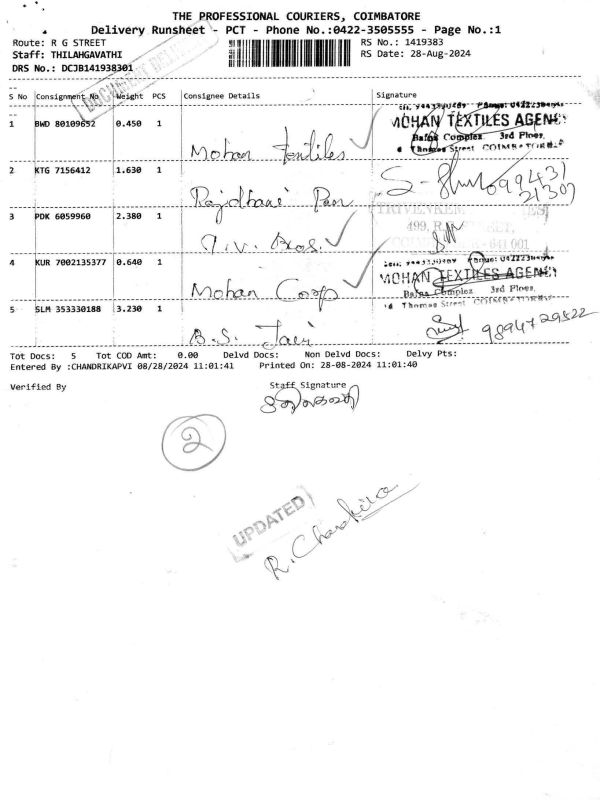 THE PROFESSIONAL COURIERS, COIMBATORE
Delivery Runsheet - PCT - Phone No.:0422-3505555 - Page No.:1
Route: R G STREET
RS No.: 1419383
Staff: THILAHGAVATHI
RS Date: 28-Aug-2024
DRS No.: DCJB141938301
DOCUMENT DELIVERED
S No Consignment No Weight PCS Consignee Details Signature
1 BWD 80109652 0.450 1
MOHAN TEXTILES AGENCY
Bafna Complex 3rd Floor,
Thomas Street COIMBATORE
Mohan Textiles
2 KTG 7156412 1.630 1
099431
21307
Rajdhani Pen
3 PDK 6059960 2.380 1
499, R.
641 001
T.V. Bros.
4 KUR 7002135377 0.640 1
MOHAN TEXTILES AGENCY
Bafna Complex 3rd Floor,
Thomas Street COIMBATORE
Mohan Coop
5 SLM 353330188 3.230 1
9894729822
B.S. Jain
Tot Docs: 5 Tot COD Amt: 0.00 Delvd Docs: Non Delvd Docs: Delvy Pts:
Entered By :CHANDRIKAPVI 08/28/2024 11:01:41 Printed On: 28-08-2024 11:01:40
Verified By Staff Signature
2
UPDATED
R. Chandrika